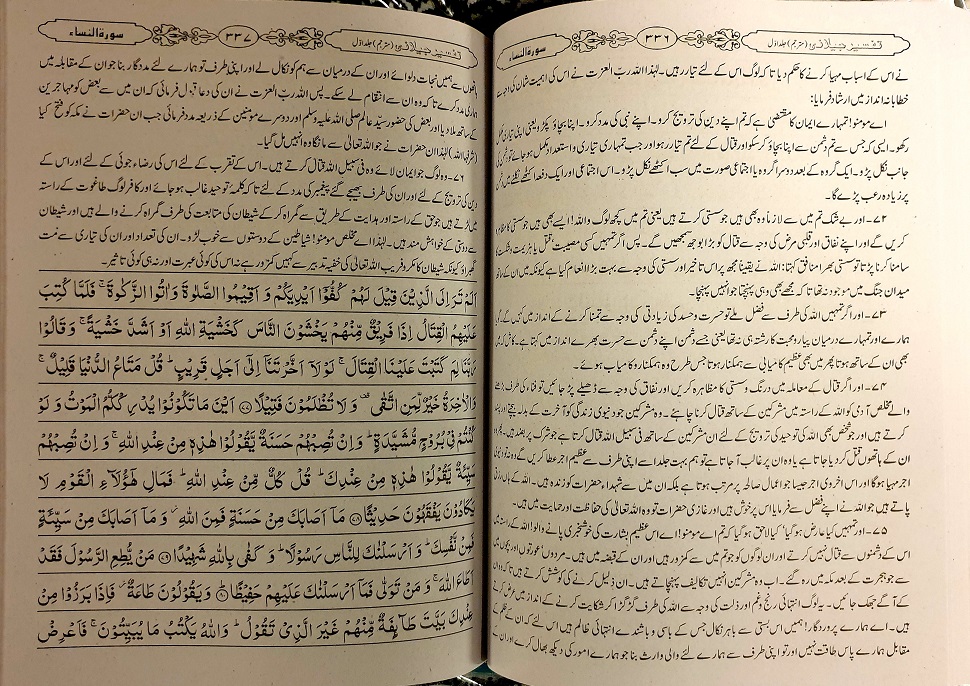 تفسیر جیلانی (مترجم) جلد اول
۳۳۶
سورۃ النساء
نے اس کے اسباب مہیا کرنے کا حکم دیا تا کہ لوگ اس کے لئے تیار رہیں۔ لہٰذا اللہ رب العزت نے اس کی اہمیت شان کی وجہ سے
خطابانہ انداز میں ارشاد فرمایا:
اے مومنو! تمہارے ایمان کا مقتضی ہے کہ تم اپنے دین کی ترویج کرو۔ اپنے نبی کی مدد کرو۔ اپنا بچاؤ پکڑو یعنی اپنی تیاری مکمل
رکھو۔ ایسی کہ جس سے تم دشمن سے اپنا بچاؤ کر سکو اور قتال کے لئے تم تیار رہو اور جب تمہاری تیاری و استعداد مکمل ہو جائے تو دشمن کی
جانب نکل پڑو۔ ایک گروہ کے بعد دوسرا گروہ یا اجتماعی صورت میں سب اکٹھے نکل پڑو۔ اس اجتماعی اور ایک دفعہ اکٹھے نکلنے میں
پر زیادہ رعب پڑے گا۔
۷۲۔ اور بے شک تم میں سے لازماً وہ بھی ہیں جو سستی کرتے ہیں یعنی تم میں کچھ لوگ واللہ! ایسے بھی ہیں جو سستی کا مظاہرہ
کریں گے اور اپنے نفاق اور قلبی مرض کی وجہ سے قتال کو بڑا بوجھ سمجھیں گے۔ پس اگر تمہیں کسی مصیبت قتل یا ہزیمت و شکست کا
سامنا کرنا پڑا تو سستی بھرا منافق کہتا: اللہ نے یقیناً مجھ پر اس تاخیر اور سستی کی وجہ سے بہت بڑا انعام کیا ہے کیونکہ میں ان کے ساتھ
میدان جنگ میں موجود نہ تھا کہ مجھے بھی وہی پہنچتا جو انہیں پہنچا۔
۷۳۔ اور اگر تمہیں اللہ کی طرف سے فضل ملے تو حسرت و حسد کی زیادتی کی وجہ سے تمنا کرنے کے انداز میں کہیں گے۔ گویا
ہمارے اور تمہارے درمیان پیار و محبت کا رشتہ ہی نہ تھا یعنی جیسے دشمن اپنے دشمن سے حسرت بھرے انداز میں کہتا ہے۔ کاش کہ میں
بھی ان کے ساتھ ہوتا پھر میں بھی عظیم کامیابی سے ہمکنار ہوتا جس طرح وہ ہمکنار و کامیاب ہوئے۔
۷۴۔ اور اگر قتال کے معاملہ میں درنگ و سستی کا مظاہرہ کریں اور نفاق کی وجہ سے ڈھیلے پڑ جائیں تو فناء کی طرف بڑھنے
والے مخلص آدمی کو اللہ کے راستہ میں مشرکین کے ساتھ قتال کرنا چاہئے۔ وہ مشرکین جو دنیوی زندگی کو آخرت کے بدلہ بیچتے اور پسند
کرتے ہیں اور جو شخص بھی اللہ کی توحید کی ترویج کے لئے ان مشرکین کے ساتھ فی سبیل اللہ قتال کرتا ہے جو شرک پر بضد ہیں۔ پھر وہ
ان کے ہاتھوں قتل کر دیا جاتا ہے یا وہ ان پر غالب آ جاتا ہے تو ہم بہت جلد اسے اپنی طرف سے عظیم اجر عطا کریں گے وہ نہ دنیوی
اجر مہیا ہوگا اور اس اخروی اجر جیسا جو اعمال صالحہ پر مرتب ہوتا ہے بلکہ ان میں سے شہداء حضرات کو زندہ ہیں۔ اللہ کے ہاں رزق
پاتے ہیں جو اللہ نے اپنے فضل سے فرمایا اس پر خوش ہیں اور غازی حضرات تو وہ اللہ تعالیٰ کی حفاظت اور حمایت میں ہیں۔
۷۵۔ اور تمہیں کیا عارض ہو گیا' کیا لاحق ہو گیا کہ تم اے مومنو! اے اس عظیم بشارت کی خوشخبری پانے والو اللہ کے راستہ میں
اس کے دشمنوں سے قتال نہیں کرتے اور ان لوگوں کو جو تم میں سے کمزور ہیں اور ان کے قبضہ میں ہیں۔ مردوں عورتوں اور بچوں میں
سے جو ہجرت کے بعد مکہ میں رہ گئے۔ اب وہ مشرکین انہیں تکالیف پہنچاتے ہیں۔ ان ذلیل کرنے کی کوشش کرتے ہیں تا کہ وہ ان
کے آگے جھک جائیں۔ یہ لوگ انتہائی رنج و غم اور ذلت کی وجہ سے اللہ کی طرف گڑگڑا کر شکایت کرنے کے انداز میں عرض کرتے
ہیں۔ اے ہمارے پروردگار! ہمیں اس بستی سے باہر نکال جس کے باسی و باشندے انتہائی ظالم ہیں اس لئے کہ ان کے ظلم کے
مقابل ہمارے پاس طاقت نہیں اور تو اپنی طرف سے ہمارے لئے والی وارث بنا جو ہمارے امور کی دیکھ بھال کرے اور ان کے
تفسیر جیلانی (مترجم) جلد اول
۳۳۷
سورۃ النساء
ہاتھوں سے ہمیں نجات دلوائے اور ان کے درمیان سے ہم کو نکال لے اور اپنی طرف تو ہمارے لئے مددگار بنا جو ان کے مقابلہ میں
ہماری مدد کرے تا کہ وہ ان سے انتقام لے سکے۔ پس رب العزت نے ان کی دعا قبول فرمائی کہ ان میں سے بعض کو مہاجرین
کے ساتھ ملا دیا اور بعض کی حضور سید عالم صلی اللہ علیہ وسلم اور دوسرے مومنین کے ذریعہ مدد فرمائی جب ان حضرات نے مکہ کو فتح کیا
(شرفہا اللہ) لہٰذا ان حضرات نے جو اللہ تعالیٰ سے مانگا وہ انہیں مل گیا۔
۷۶۔ وہ لوگ جو ایمان لائے وہ فی سبیل اللہ قتال کرتے ہیں۔ اس کے تقرب کے لئے اس کی رضاء جوئی کے لئے اور اس کے
دین کی ترویج کے لئے اور ان کی طرف بھیجے گئے پیغمبر کی مدد کے لئے تا کہ کلمۂ توحید غالب ہو جائے اور کافر لوگ طاغوت کے راستہ
میں لڑتے ہیں جو حق کے راستہ اور ہدایت کے طریق سے گمراہ کر کے شیطان کی متابعت کی طرف گمراہ کرنے والے ہیں اور شیطان
سے دوستی کے خواہش مند ہیں۔ لہٰذا اے مخلص مومنو! شیاطین کے دوستوں سے خوب لڑو۔ ان کی تعداد اور ان کی تیاری سے مت
گھبراؤ کیونکہ شیطان کا مکر و فریب اللہ تعالیٰ کی خفیہ تدبیر سے کہیں کمزور ہے نہ اس کی کوئی عبرت اور نہ ہی کوئی تاخیر۔
اَلَمْ تَرَ اِلَى الَّذِيْنَ قِيْلَ لَهُمْ كُفُّوْٓا اَيْدِيَكُمْ وَ اَقِيْمُوا الصَّلٰوةَ وَ اٰتُوا الزَّكٰوةَ ۚ فَلَمَّا كُتِبَ
عَلَيْهِمُ الْقِتَالُ اِذَا فَرِيْقٌ مِّنْهُمْ يَخْشَوْنَ النَّاسَ كَخَشْيَةِ اللّٰهِ اَوْ اَشَدَّ خَشْيَةً ۚ وَ قَالُوْا
رَبَّنَا لِمَ كَتَبْتَ عَلَيْنَا الْقِتَالَ ۚ لَوْ لَاۤ اَخَّرْتَنَاۤ اِلٰۤى اَجَلٍ قَرِيْبٍ ؕ قُلْ مَتَاعُ الدُّنْيَا قَلِيْلٌ ۚ
وَ الْاٰخِرَةُ خَيْرٌ لِّمَنِ اتَّقٰى ۫ وَ لَا تُظْلَمُوْنَ فَتِيْلًا ﴿۷۷﴾ اَيْنَ مَا تَكُوْنُوْا يُدْرِكْكُّمُ الْمَوْتُ وَ لَوْ
كُنْتُمْ فِيْ بُرُوْجٍ مُّشَيَّدَةٍ ؕ وَ اِنْ تُصِبْهُمْ حَسَنَةٌ يَّقُوْلُوْا هٰذِهٖ مِنْ عِنْدِ اللّٰهِ ۚ وَ اِنْ تُصِبْهُمْ
سَيِّئَةٌ يَّقُوْلُوْا هٰذِهٖ مِنْ عِنْدِكَ ؕ قُلْ كُلٌّ مِّنْ عِنْدِ اللّٰهِ ؕ فَمَالِ هٰۤؤُلَآءِ الْقَوْمِ لَا
يَكَادُوْنَ يَفْقَهُوْنَ حَدِيْثًا ﴿۷۸﴾ مَاۤ اَصَابَكَ مِنْ حَسَنَةٍ فَمِنَ اللّٰهِ ۫ وَ مَاۤ اَصَابَكَ مِنْ سَيِّئَةٍ
فَمِنْ نَّفْسِكَ ؕ وَ اَرْسَلْنٰكَ لِلنَّاسِ رَسُوْلًا ؕ وَ كَفٰى بِاللّٰهِ شَهِيْدًا ﴿۷۹﴾ مَنْ يُّطِعِ الرَّسُوْلَ فَقَدْ
اَطَاعَ اللّٰهَ ۚ وَ مَنْ تَوَلّٰى فَمَاۤ اَرْسَلْنٰكَ عَلَيْهِمْ حَفِيْظًا ﴿۸۰﴾ وَ يَقُوْلُوْنَ طَاعَةٌ ۫ فَاِذَا بَرَزُوْا مِنْ
عِنْدِكَ بَيَّتَ طَآئِفَةٌ مِّنْهُمْ غَيْرَ الَّذِيْ تَقُوْلُ ؕ وَ اللّٰهُ يَكْتُبُ مَا يُبَيِّتُوْنَ ۚ فَاَعْرِضْ